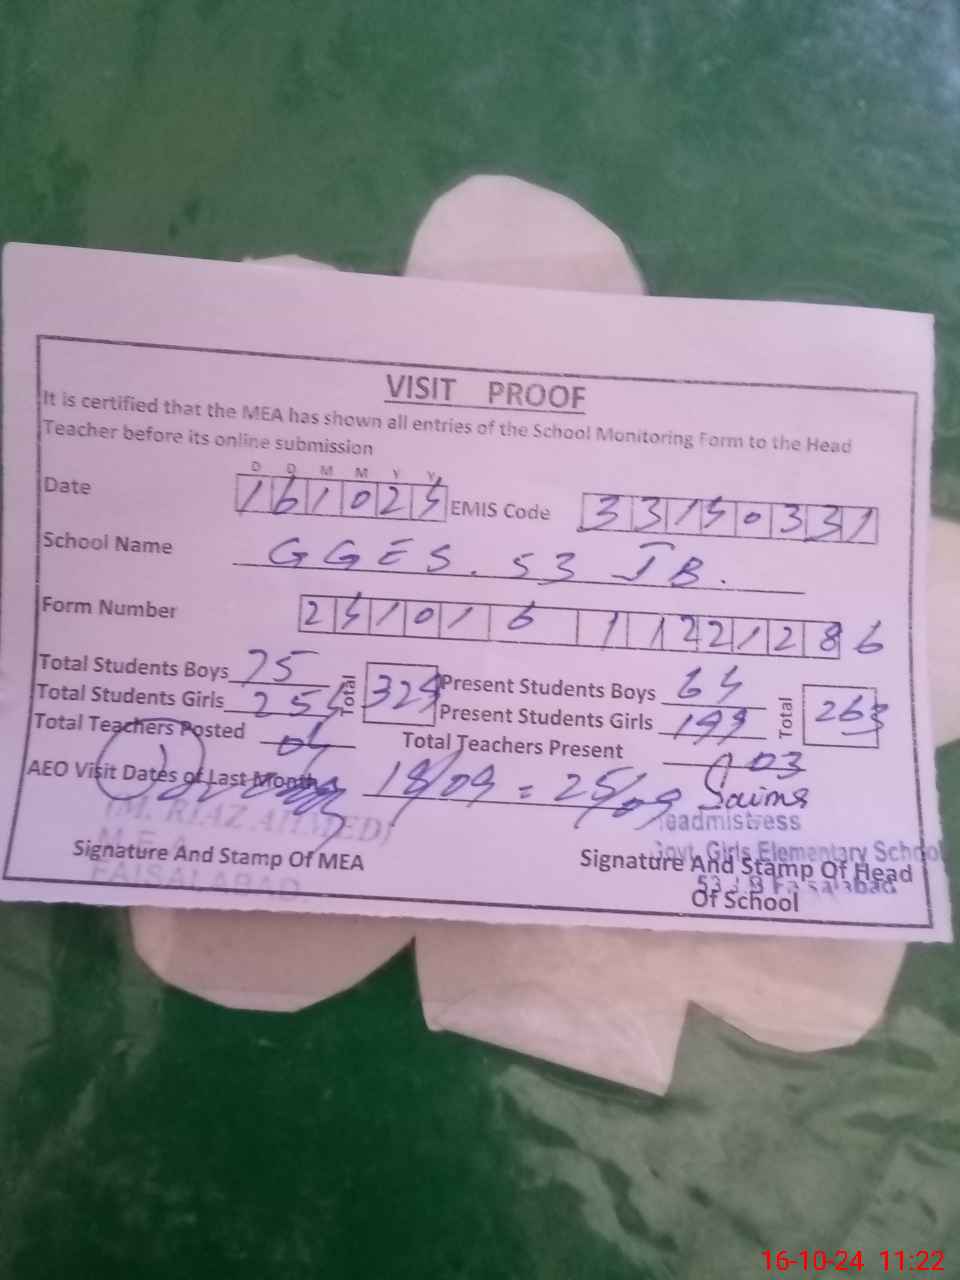 VISIT PROOF
It is certified that the MEA has shown all entries of the School Monitoring Form to the Head
Teacher before its online submission
D D M M Y Y
Date 161024 EMIS Code 33150331
School Name GGES. 53 JB.
Form Number 24101611221286
Total Students Boys 75 Total 329 Present Students Boys 64 Total 263
Total Students Girls 254 Present Students Girls 199
Total Teachers Posted 04 Total Teachers Present 03
AEO Visit Dates of Last Month 18/09 = 25/09 Saima
(M. RIAZ AHMED)
M.E.A
FAISALABAD.
Signature And Stamp Of MEA
Headmistress
Govt. Girls Elementary School
53 J.B Faisalabad
Signature And Stamp Of Head
Of School
16-10-24 11:22